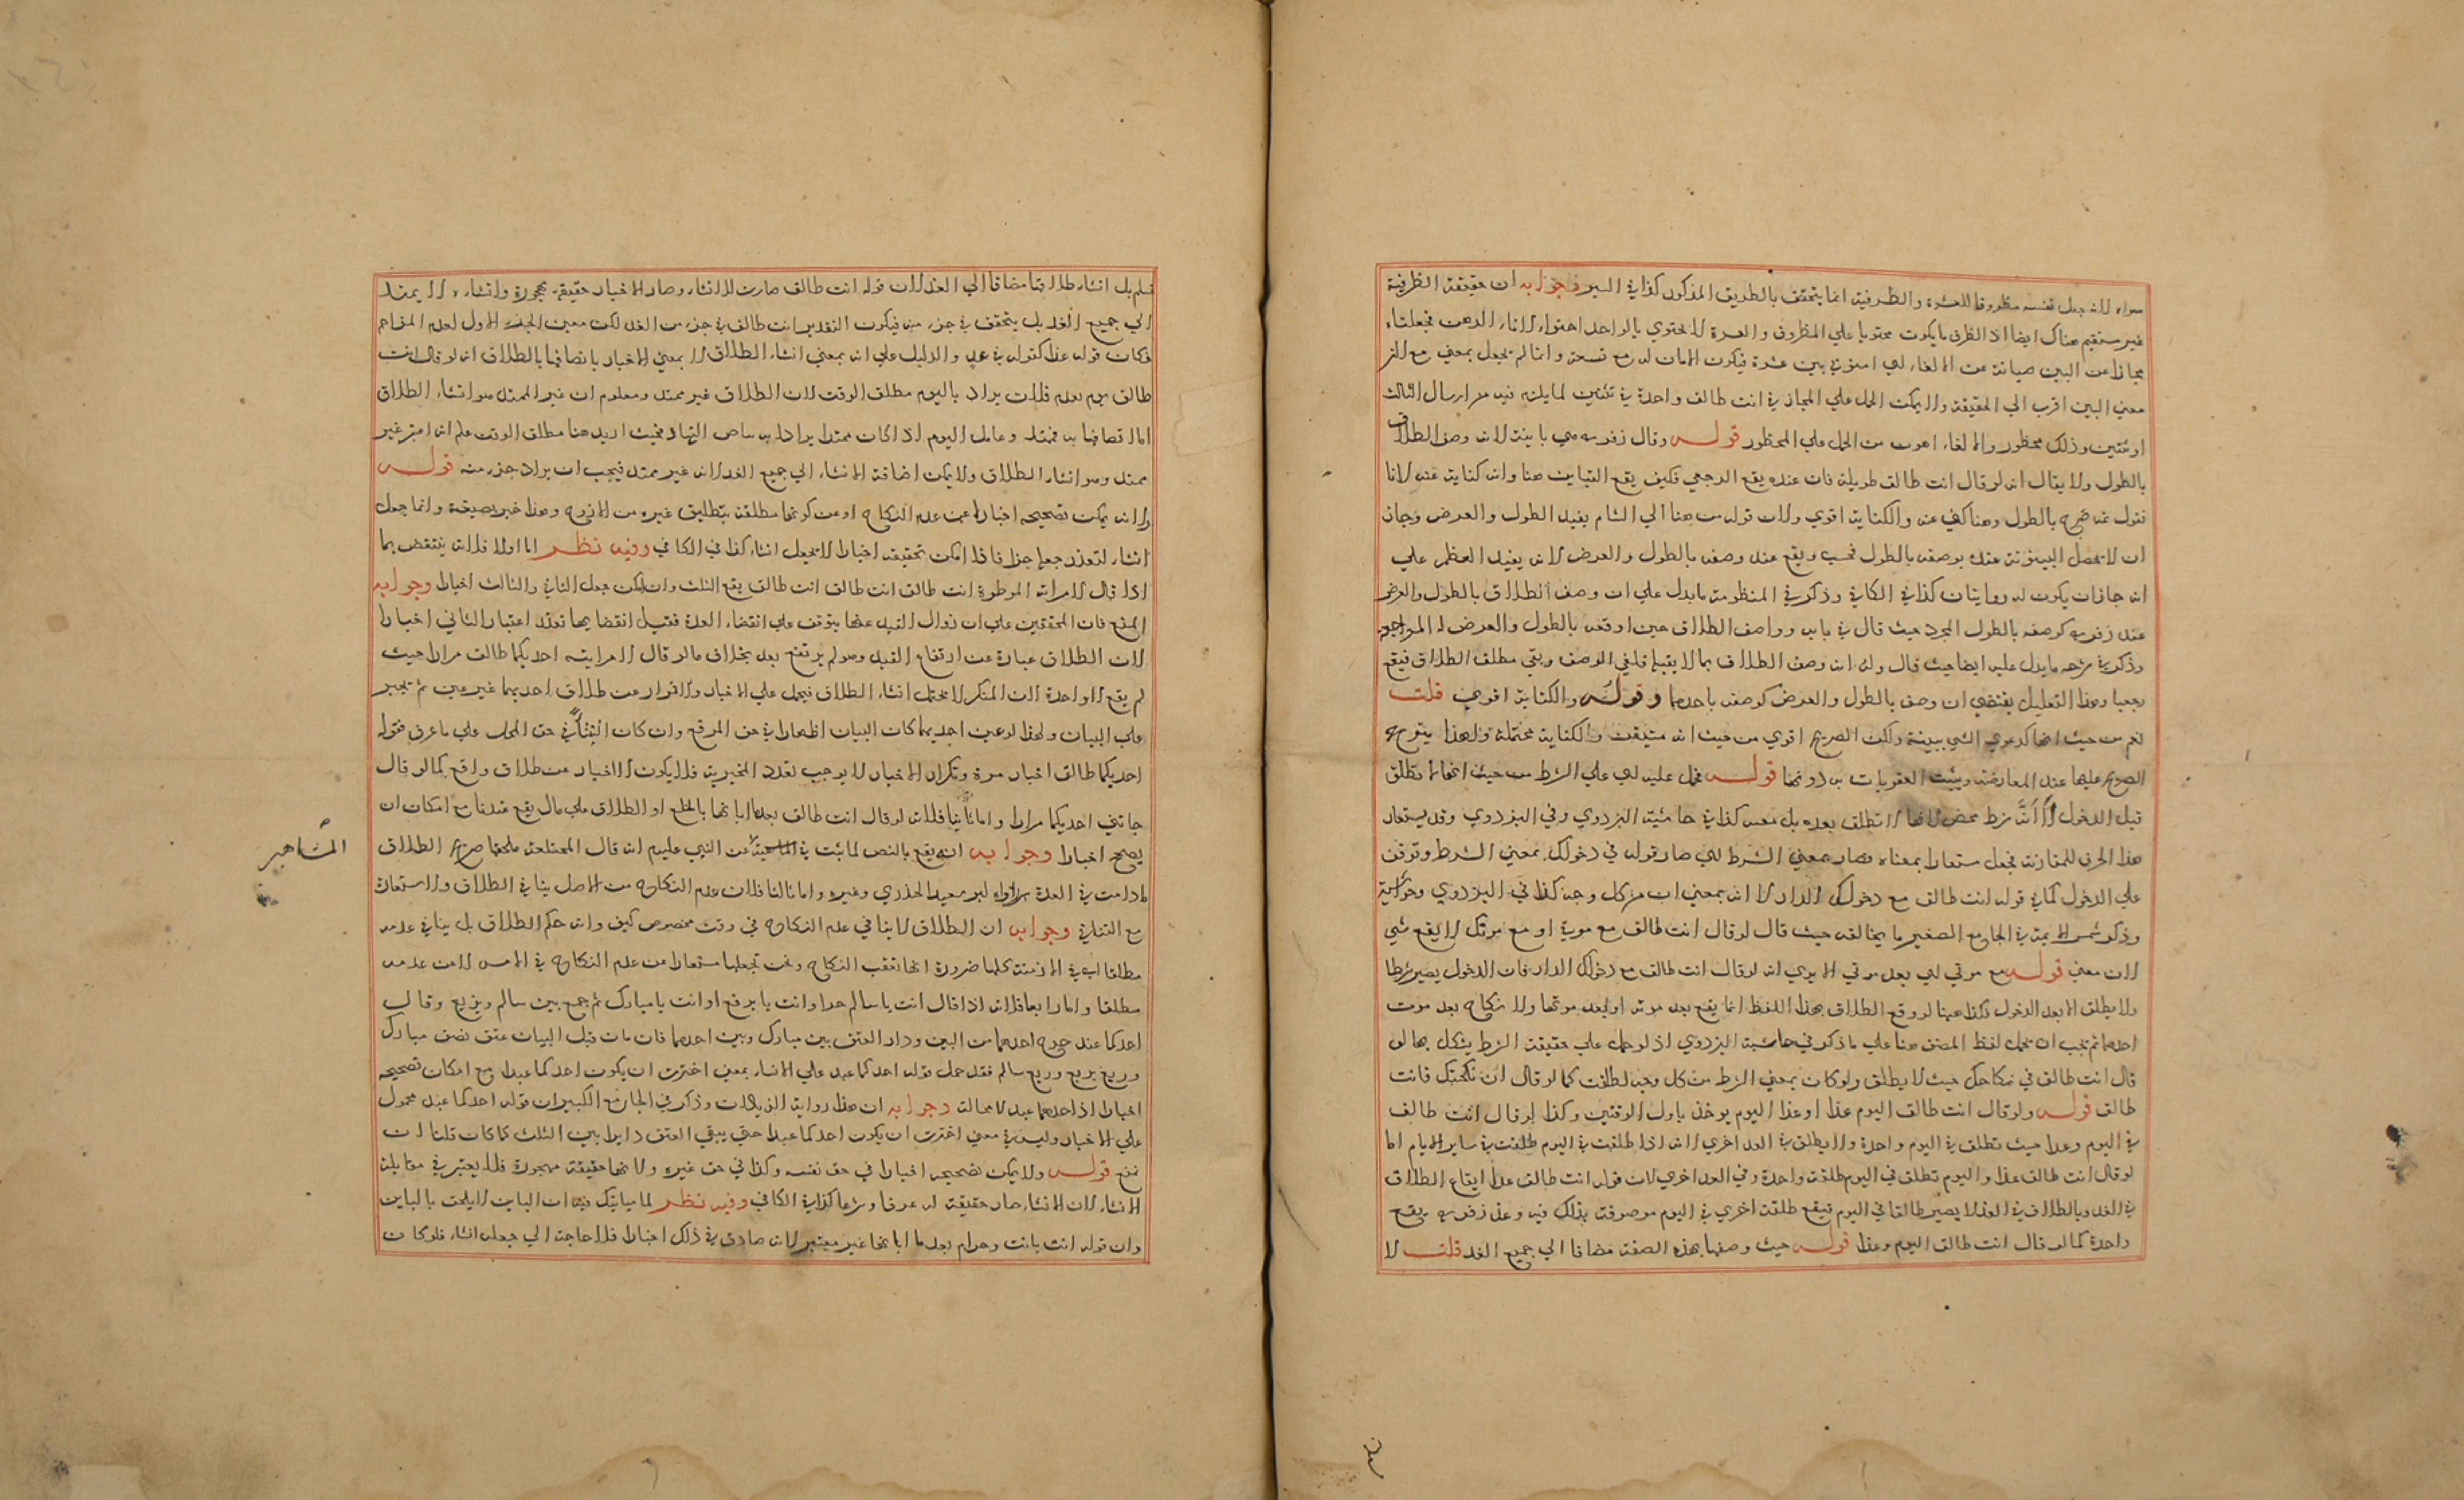 سواء لانه جعل نفسه مظروفا للعشرة والظرفية انما يتحقق بالطريق المذكور كذا في السير وجوابه ان حقيقة الظرفية
غير مستقيم هناك ايضا اذ الظرف ما يكون محتويا علي المظروف والعشرة لا تحتوي بالواحد احتواء الاناء الدهن فجعلناه
مجازا عن البين صيانة عن الالغاء اي امنوني بين عشرة فيكون الامان له مع تسعة وانما لم يجعل بمعني مع لان
معني البين اقرب الي الحقيقة ولا يمكن الحمل علي المجاز في انت طالق واحدة في ثنتين لما يلزم فيه من ارسال الثالث
او ثنتين وذلك محظور والالغاء اهون من الحمل علي المحظور قوله وقال زفر هي باينة لانه وصف الطلاق
بالطول ولا يقال انه لو قال انت طالق طويلة فان عنده يقع الرجعي فكيف يقع التباين هنا وانه كناية عنه لانا
نقول ثمه صرح بالطول وهنا كني عنه والكناية اقوي ولان قوله من هنا الي الشام يفيد الطول والعرض وجاز
ان لا تحصل البينونة عنده بوصفه بالطول فحسب ويقع عند وصفه بالطول والعرض لانه يفيد العظم علي
انه جاز ان يكون له روايتان كذا في الكافي وذكر في المنظومة ما يدل علي ان وصف الطلاق بالطول والعرض
عند زفر كوصفه بالطول المجرد حيث قال في بابه وواصف الطلاق حين اوقعه بالطول والعرض له المراجعه
وذكر في شرحه ما يدل عليه ايضا حيث قال وله انه وصف الطلاق بما لا يقبله فلغي الوصف وبقي مطلق الطلاق فيقع
رجعيا وهذا التعليل يقتضي ان وصفه بالطول والعرض كوصفه باحدهما وقوله والكناية اقوي قلت
نعم من حيث انها كدعوي الشي ببينة ولكن الصريح اقوي من حيث انه متيقن والكناية محتملة ولهذا يترجح
الصريح عليها عند المعارضة ويثبت العقوبات به دونها قوله فحمل عليه اي علي الشرط من حيث انها لا تطلق
قبل الدخول لا انه شرط محض لانها لا تطلق بعده بل معه كذا في حاشية البزدوي وفي البزدوي وقد يستعار
هذا الحرف للمقارنة فجعل مستعارا بمعناه فصار بمعني الشرط اي صار قوله في دخولك بمعني الشرط وتوقف
علي الدخول كما في قوله انت طالق مع دخولك الدار لا انه بمعني ان من كل وجه كذا في البزدوي وحواشيه
وذكر شمس الايمة في الجامع الصغير ما يخالفه حيث قال لو قال انت طالق مع موتي او مع موتك لا يقع شي
لان معني قوله مع موتي اي بعد موتي الا يري انه لو قال انت طالق مع دخولك الدار فان الدخول يصير شرطا
ولا يطلق الا بعد الدخول فكذا هنا لو وقع الطلاق بهذا اللفظ انما يقع بعد موته او بعد موتها ولا نكاح بعد موت
احدهما ثم يجب ان يحمل لفظ المصنف هنا علي ما ذكر في حاشية البزدوي اذ لو حمل علي حقيقة الشرط يشكل بما لو
قال انت طالق في نكاحك حيث لا يطلق ولو كان بمعني الشرط من كل وجه لطلقت كما لو قال ان نكحتك فانت
طالق قوله ولو قال انت طالق اليوم غدا او غدا اليوم يوخذ باول الوقتين وكذا لو قال انت طالق
في اليوم وغدا حيث تطلق في اليوم واحدة ولا يطلق في الغد اخري لانه اذا طلقت في اليوم طلقت في ساير الايام اما
لو قال انت طالق غدا واليوم تطلق في اليوم طلقة واحدة وفي الغد اخري لان قوله انت طالق غدا ايقاع الطلاق
في الغد وبالطلاق في الغد لا يصير طالقا في اليوم فيقع طلقة اخري في اليوم موصوفة بذلك فيه وعند زفر يقع
واحدة كما لو قال انت طالق اليوم وغدا قوله حيث وصفها بهذه الصفة مضافا الي جميع الغد قلت لا
نسلم بل انشاء طلاقها مضافا الي الغد لان قوله انت طالق صارت للانشاء وصار الاخبار حقيقة مهجورة وانشاءه لا يمتد
الي جميع الغد بل يتحقق في جزء منه فيكون التقدير انت طالق في جزء من الغد لكن معين الجزء الاول لعدم المزاحم
فكان قوله غدا كقوله في غد والدليل علي انه بمعني انشاء الطلاق لا بمعني الاخبار باتصافها بالطلاق انه لو قال انت
طالق يوم يقدم فلان يراد باليوم مطلق الوقت لان الطلاق غير ممتد ومعلوم ان غير الممتد هو انشاء الطلاق
اما اتصافها به فممتد وعامل اليوم اذا كان ممتدا يراد به بياض النهار فحيث اريد هنا مطلق الوقت علم انه اعتبر غير
ممتد وهو انشاء الطلاق ولا يمكن اضافة الانشاء الي جميع الغد لانه غير ممتد فيجب ان يراد جزء منه قوله
ولانه يمكن تصحيحه اخبارا عن عدم النكاح او عن كونها مطلقة بتطليق غيره من الازواج وهذا خبر بصيغته وانما جعل
انشاء لتعذر جعله خبرا فاذا امكن تحقيقه اخبارا لا تجعل انشاء كذا في الكافي وفيه نظر اما اولا فلانه ينتقض بما
اذا قال لامراته الموطوءة انت طالق انت طالق انت طالق يقع الثلث وان امكن جعل الثاني والثالث اخبارا وجوابه
المنع فان المحققين علي ان زوال القيد عنها يتوقف علي انقضاء العدة فقبل انقضايها تعذر اعتبار الثاني اخبارا
لان الطلاق عبارة عن ارتفاع القيد وهو لم يرتفع بعد بخلاف ما لو قال لامراتيه احديكما طالق مرارا حيث
لم يقع الا واحدة لان المنكر لا يحتمل انشاء الطلاق فيحمل علي الاخبار والاقرار عن طلاق احديهما غير عين ثم يجبر
علي البيان ولهذا لو عين احديهما كان البيان اظهارا في حق الموقع وان كان انشاء في حق المحل علي ما عرف فقوله
احديكما طالق اخبار مرة وتكرار الاخبار لا يوجب تعدد المخبر به فلا يكون الا اخبار من طلاق واقع كما لو قال
جاتني احديكما مرارا واما ثانيا فلانه لو قال انت طالق بعد ما ابانها بالخلع او الطلاق علي مال يقع عندنا مع امكان ان
يصح اخبارا وجوابه انه يقع بالنص لما ثبت في المشاهير عن النبي عليه السلام انه قال المختلعة يلحقها صريح الطلاق
ما دامت في العدة رواه ابو سعيد الخدري وغيره واما ثالثا فلان عدم النكاح من الاصل ينافي الطلاق ولا استعارة
مع التنافي وجوابه ان الطلاق لا ينافي عدم النكاح في وقت مخصوص كيف وانه حكم الطلاق بل ينافي عدمه
مطلقا اي في الازمنة كلها ضرورة انها تعقب النكاح ونحن نجعلها مستعارا عن عدم النكاح في الامس لا عن عدمه
مطلقا واما رابعا فلانه اذا قال انت يا سالم حر او انت يا بزيع او انت يا مبارك ثم جمع بين سالم وبزيع وقال
احدكما عبد خرج احدهما من البين ودار العتق بين مبارك وبين احدهما فان مات قبل البيان عتق نصف مبارك
وربع بزيع وربع سالم فقد حمل قوله احدكما عبد علي الانشاء بمعني اخترت ان يكون احدكما عبدا مع امكان تصحيحه
اخبارا اذ احدهما عبد لا محالة وجوابه ان هذا رواية الزيادات وذكر في الجامع الكبير ان قوله احدكما عبد محمول
علي الاخبار وليس في معني اخترت ان يكون احدكما عبدا حتي يبقي العتق دايرا بين الثلث كما كان قلنا ان
نمنع قوله ولا يمكن تصحيحه اخبارا في حق نفسه وكذا في حق غيره ولانها حقيقة مهجورة فلا يعتبر في مقابلة
الانشاء لان الانشاء صار حقيقة له عرفا وشرعا كذا في الكافي وفيه نظر لما سياتيك فيه ان الباين لا يلحق بالباين
وان قوله انت باينة وحرام بعد ما ابانها غير معتبر لانه صادق في ذلك اخبارا فلا حاجة الي جعله انشاء فلو كان
المشاهير